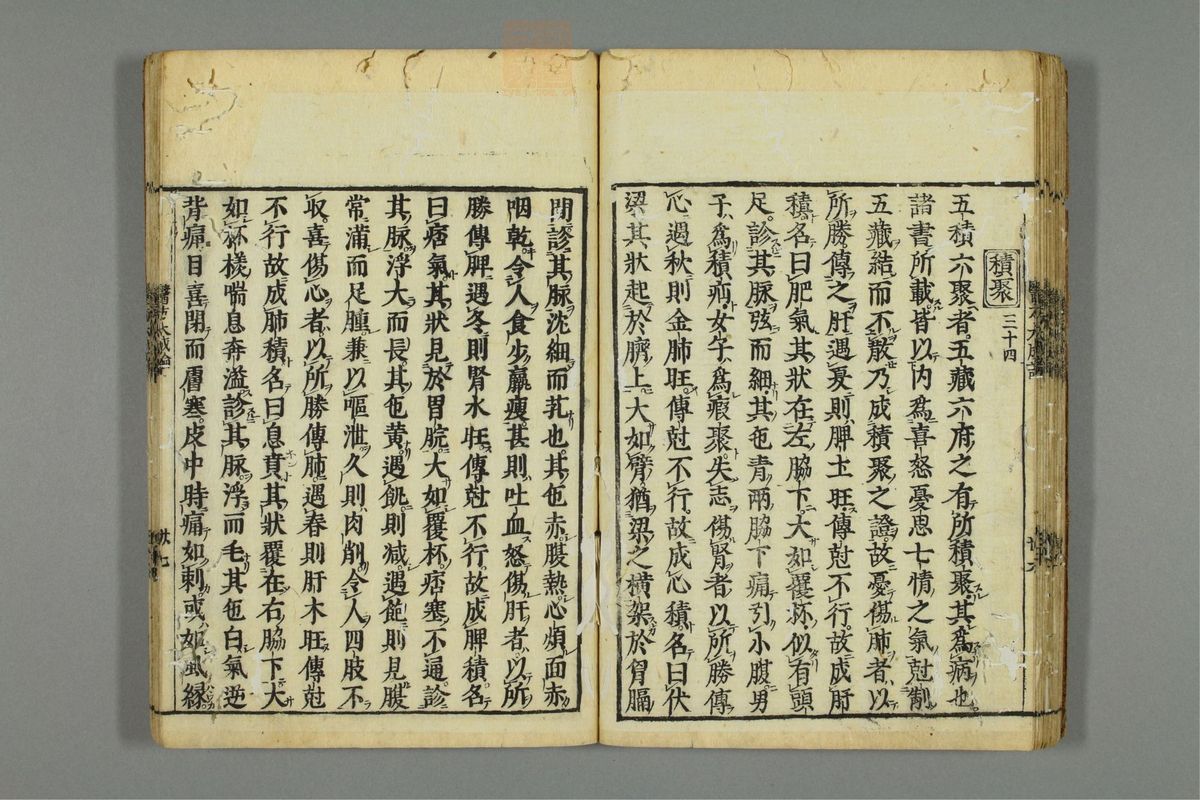 積聚 三十四
五積六聚者五藏六府之有所積聚其爲病也
諸書所載皆以内爲喜怒憂思七情之氣尅制
五藏結而不散乃成積聚之證故憂傷肺者以
所勝傳之肝遇夏則脾土旺傳尅不行故成肝
積名曰肥氣其狀在左脇下大如覆杯似有頭
足診其脉弦而細其色青兩脇下痛引小腹男
子爲積疝女子爲瘕聚失志傷腎者以所勝傳
心遇秋則金肺旺傳尅不行故成心積名曰伏
梁其狀起於臍上大如臂猶梁之横架於胷膈
間診其脉沈細而芤也其色赤腹熱心煩面赤
咽乾令人食少羸瘦甚則吐血怒傷肝者以所
勝傳脾遇冬則腎水旺傳尅不行故成脾積名
曰痞氣其狀見於胃脘大如覆杯痞塞不通診
其脉浮大而長其色黄遇飢則減遇飽則見腹
常滿而足腫兼以嘔泄久則肉削令人四肢不
収喜傷心者以所勝傳肺遇春則肝木旺傳尅
不行故成肺積名曰息賁其狀覆在右脇下大
如杯樣喘息奔溢診其脉浮而毛其色白氣逆
背痛目喜閉而膚寒皮中時痛如刺或如虱縁